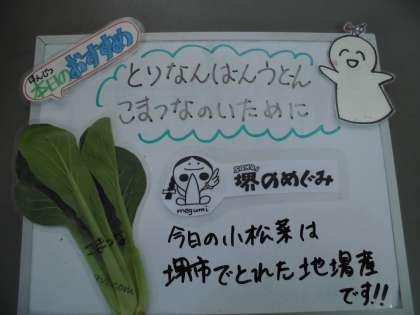 ほんじつ
本日のおすすめ
とりなんばんうどん
こまつなのいために
堺のめぐみ
megumi
こまつな
今日の小松菜は
堺市でとれた地場産
です!!